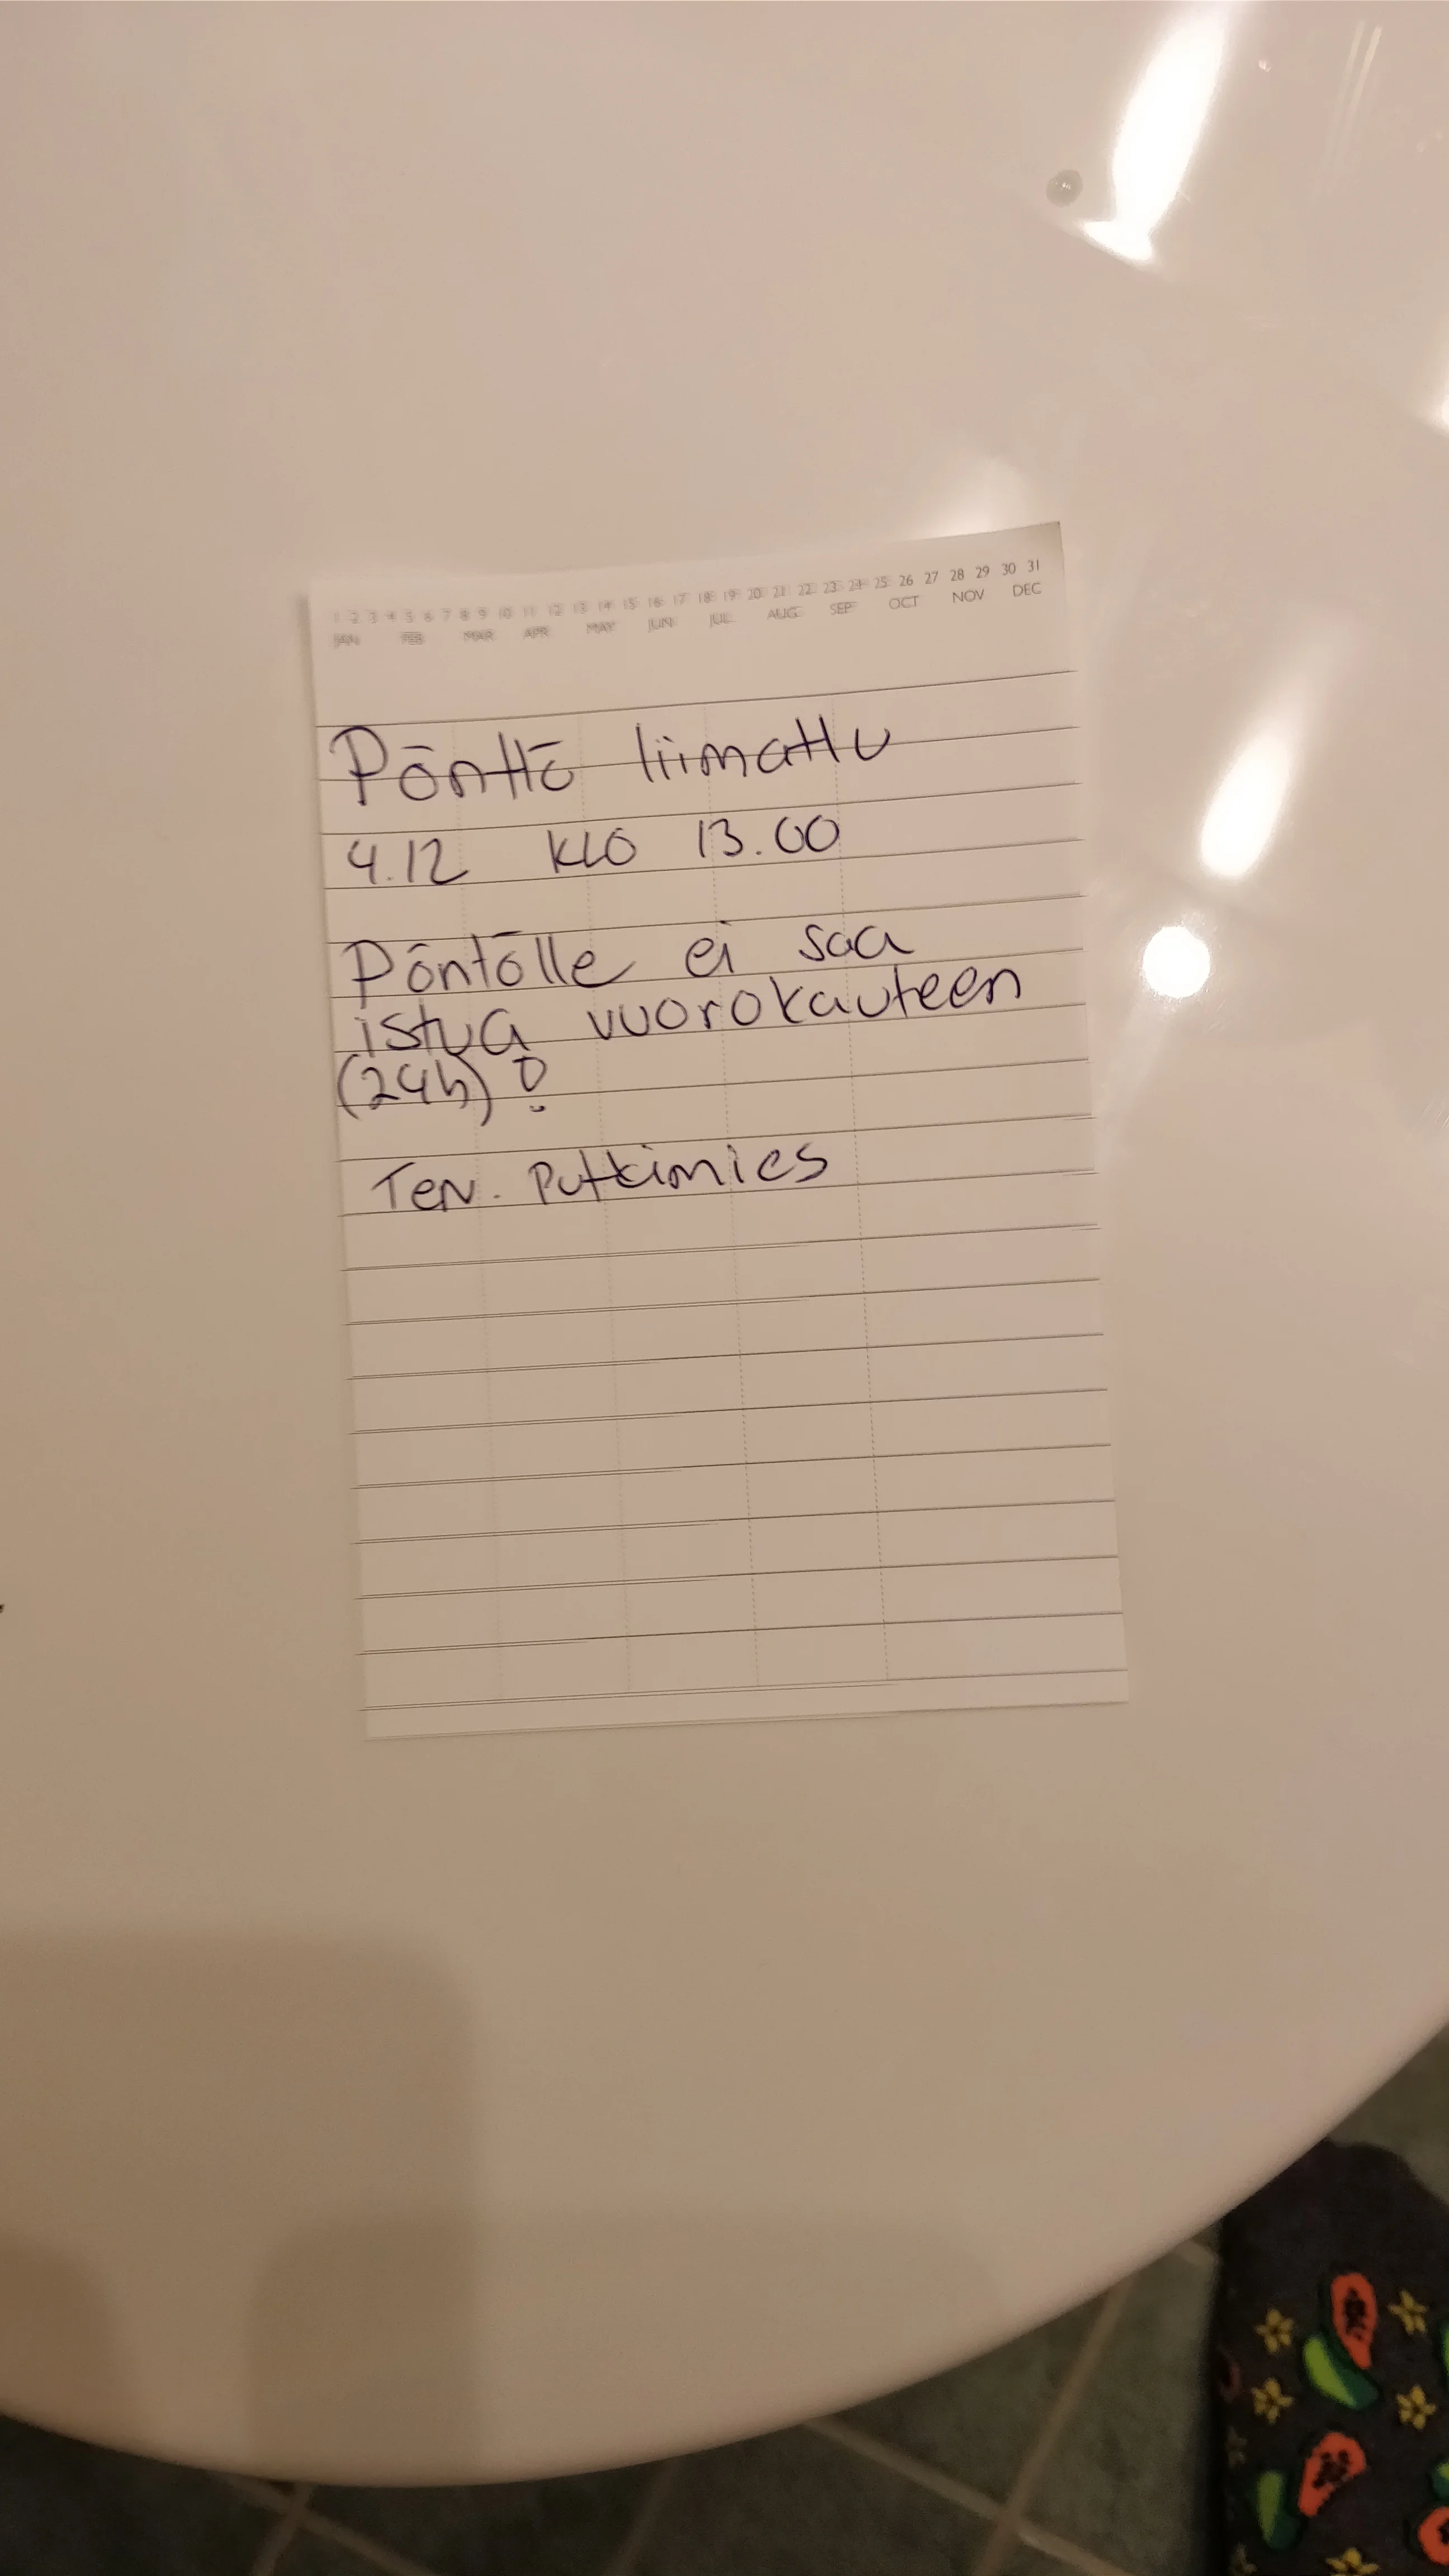 1 2 3 4 5 6 7 8 9 10 11 12 13 14 15 16 17 18 19 20 21 22 23 24 25 26 27 28 29 30 31
JAN FEB MAR APR MAY JUN JUL AUG SEP OCT NOV DEC
Pönttö liimattu
4.12 KLO 13.00
Pöntölle ei saa
istua vuorokauteen
(24h)!
Terv. Putkimies